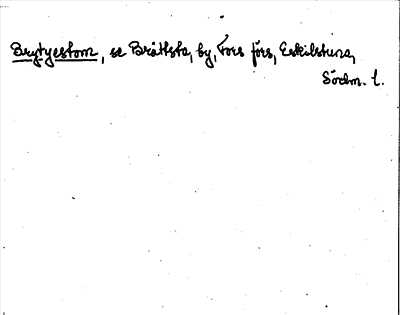 Brytyestom, se Bråtsta, by, Fors förs, Eskilstuna,
Södm. l.